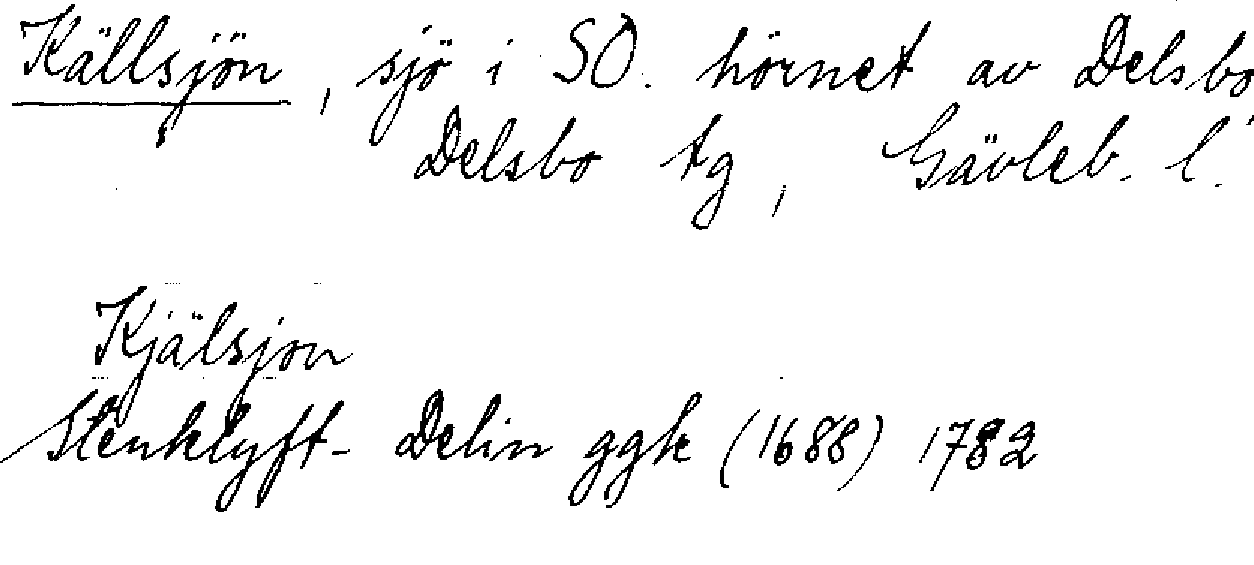 Källsjön, sjö i SO. hörnet av Delsbo,
Delsbo tg, Gävleb. l.
Kjälsjon
Stenklyft- Delin ggk (1688) 1782